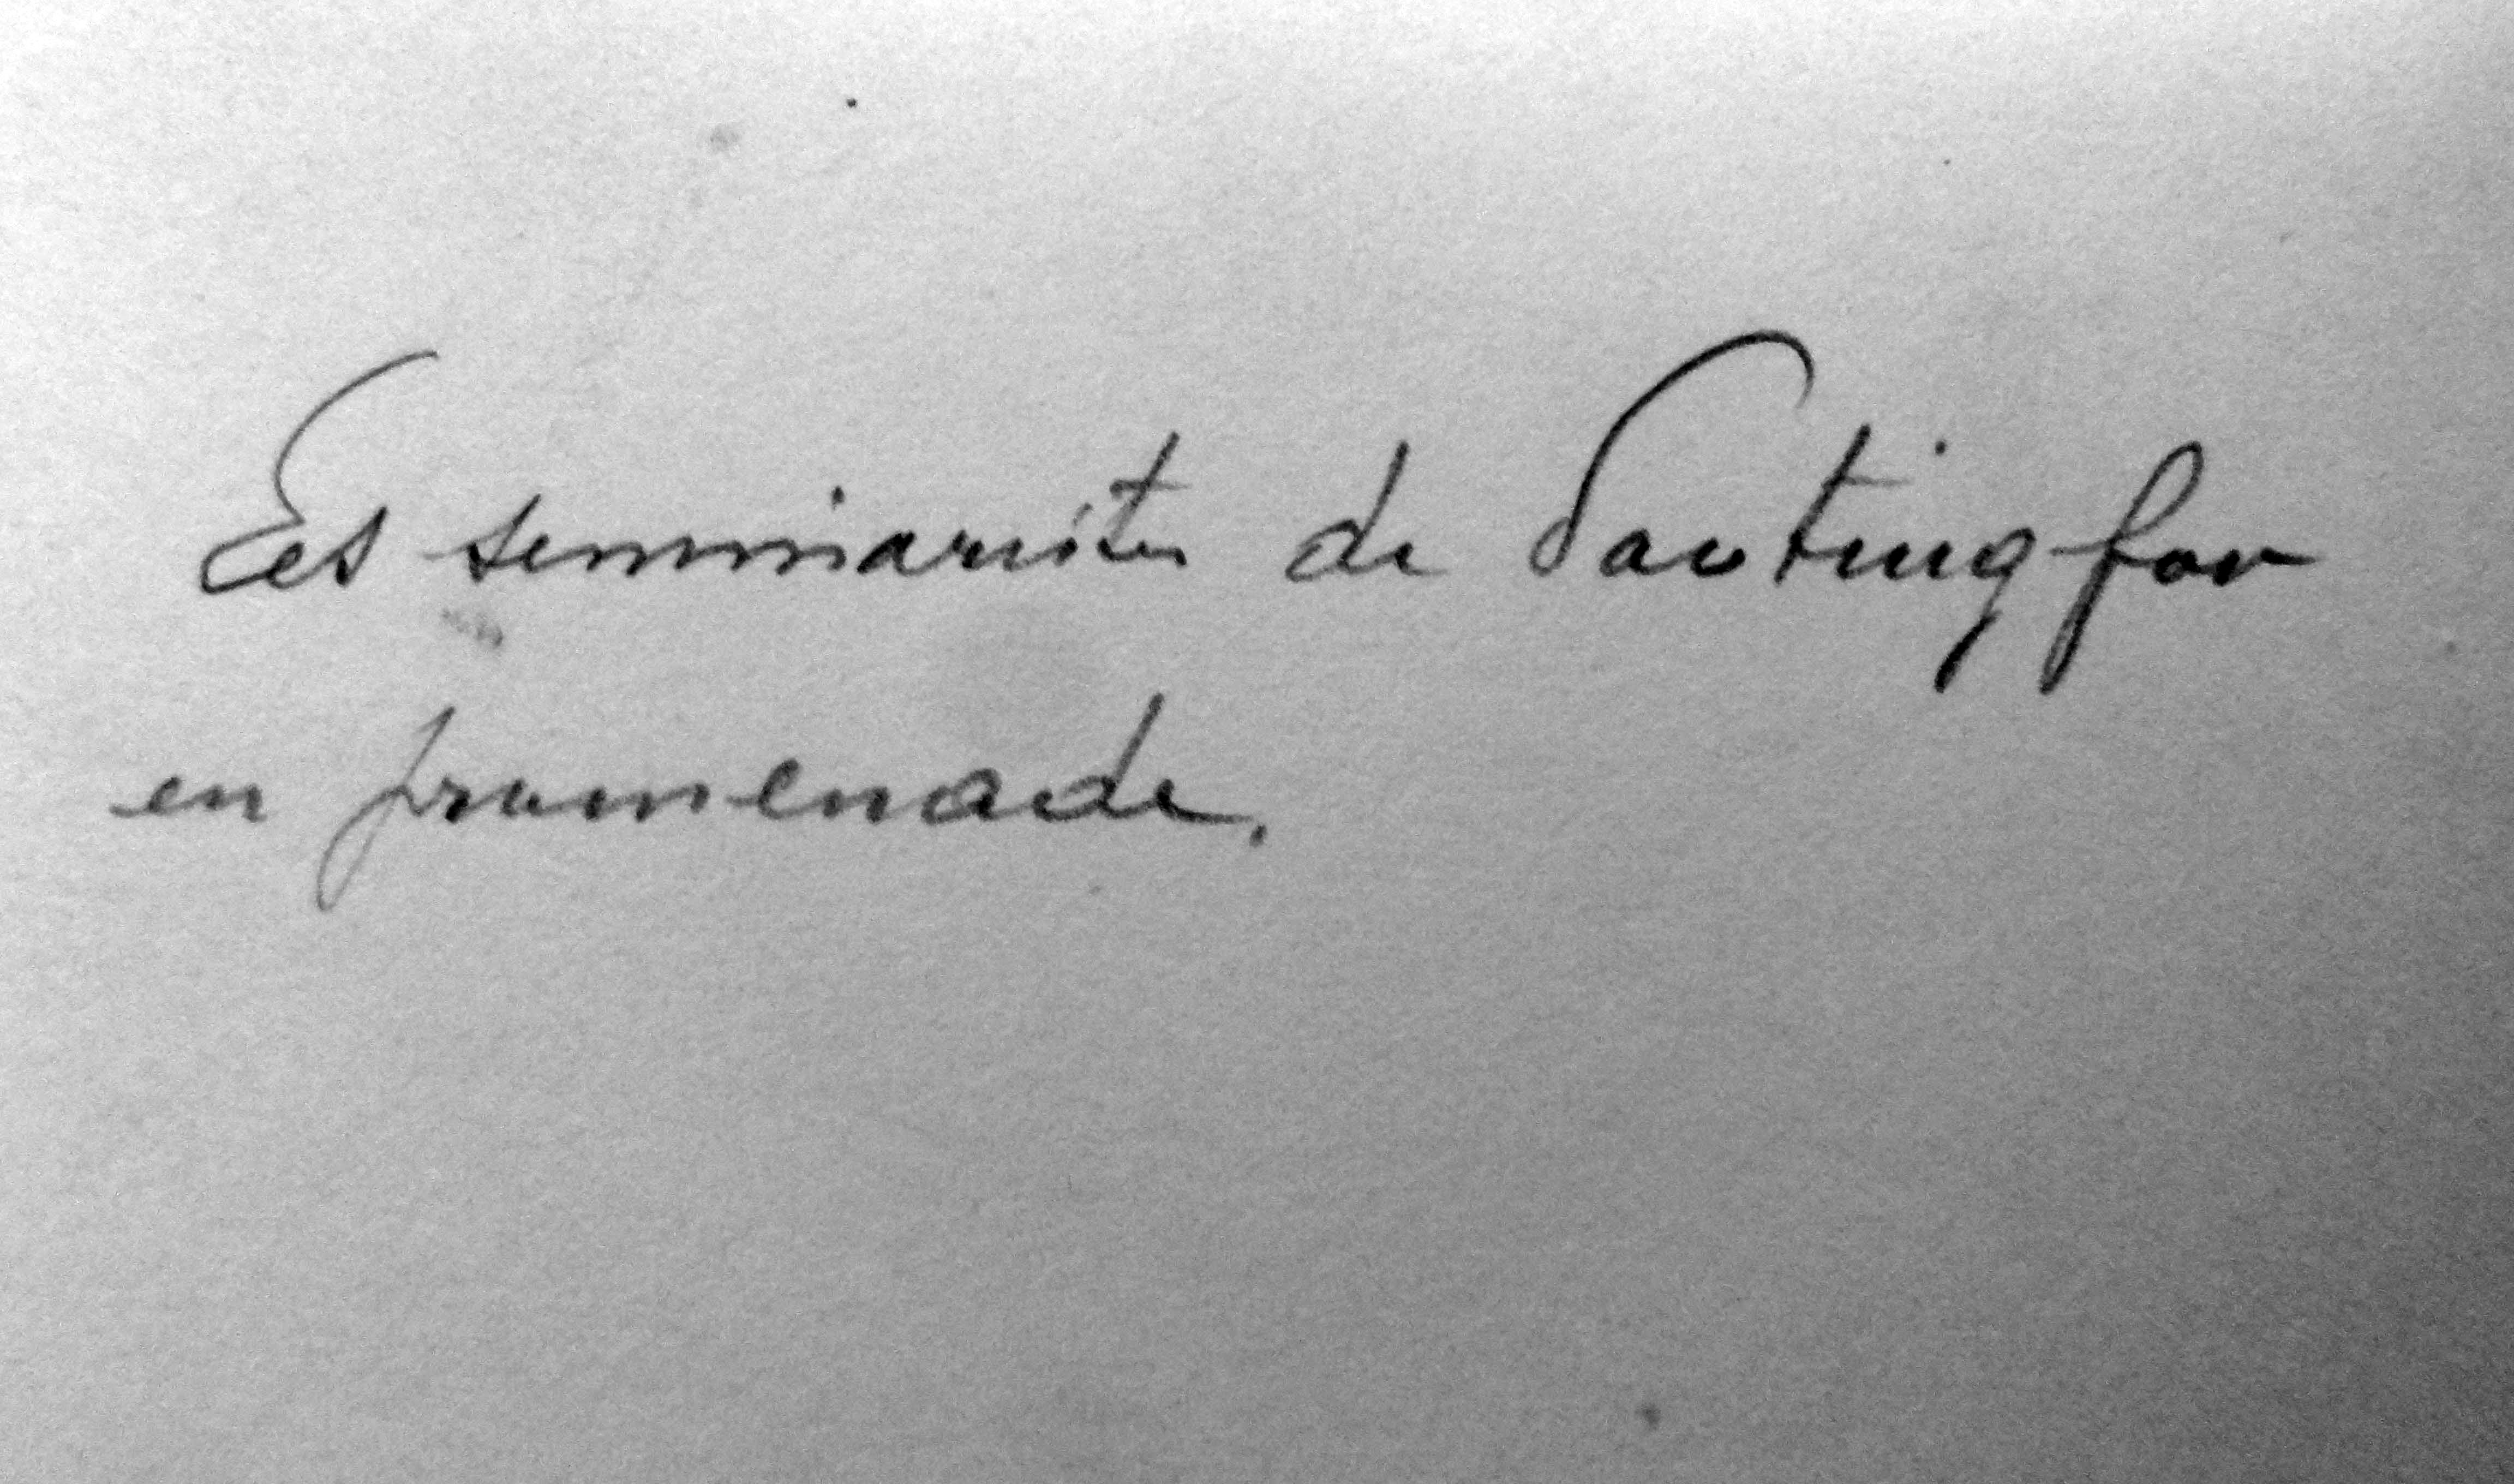 Les seminaristes de Paotingfou
en promenade.